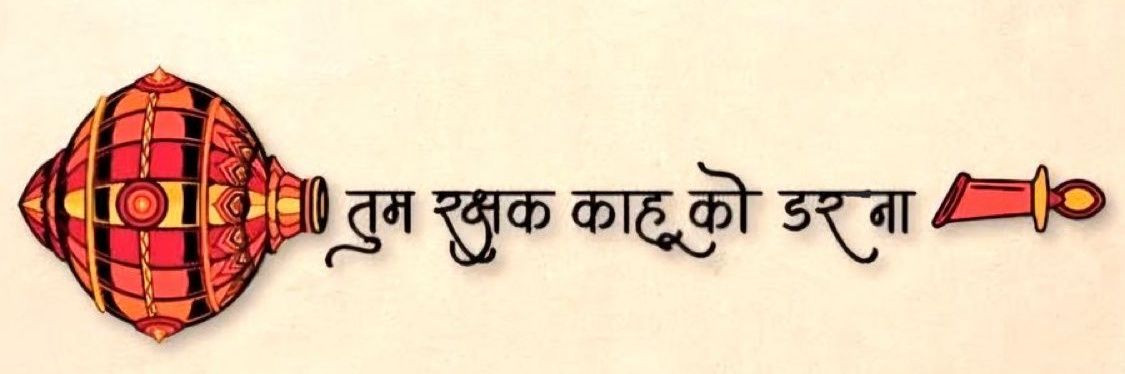 तुम रक्षक काहू को डर ना